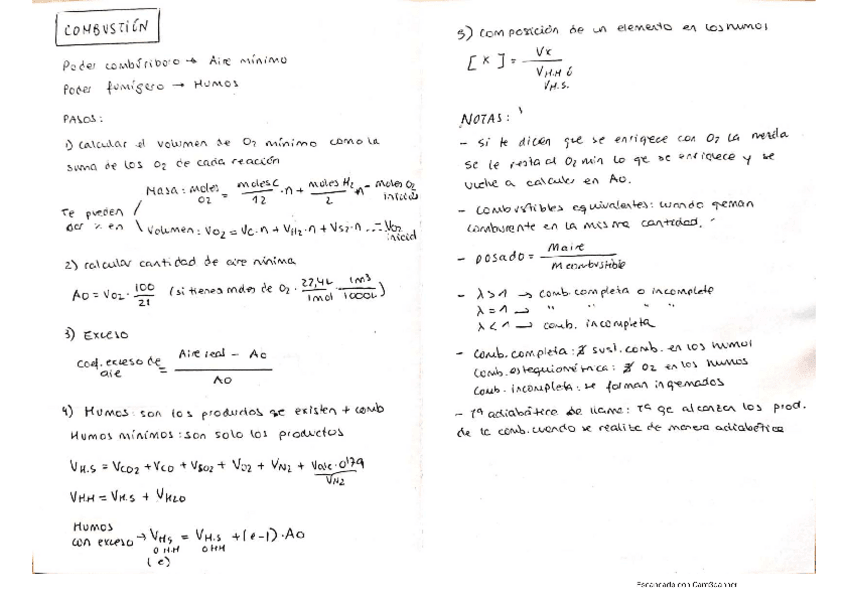 COMBUSTIÓN
Poder comburívoro → Aire mínimo
Poder fumígero → Humos
PASOS:
1) calcular el volumen de O2 mínimo como la
suma de los O2 de cada reacción
Te pueden
dar % en
Masa: moles O2 = moles C / 12 · n + moles H2 / 2 · n - moles O2 inicial
Volumen: VO2 = VC·n + VH2·n + VS2·n ... - VO2 inicial
2) calcular cantidad de aire mínima
AO = VO2 · 100/21 (si tienes moles de O2 · 22,4L/1mol · 1m3/1000L)
3) Exceso
coef. exceso de aire = Aire real - AO / AO
4) Humos: son los productos qe existen + comb
Humos mínimos: son solo los productos
VH.S = VCO2 + VCO + VSO2 + VO2 + VN2 + Vaire·0'79
VN2
VH.H = VH.S + VH2O
Humos
con exceso → VHS = VH.S + (e-1)·AO
O H.H O HH
(e)
5) composición de un elemento en los humos
[X] = VX / VH.H ó VH.S.
NOTAS:
- si te dicen que se enriqece con O2 la mezcla
se le resta al O2 min lo qe se enriqece y se
vuelve a calcular en AO.
- combustibles equivalentes: cuando qeman
comburente en la misma cantidad.
- dosado = Maire / Mcombustible
- λ>1 → comb. completa o incompleta
λ=1 → " " " "
λ<1 → comb. incompleta
- comb. completa: ∄ sust. comb. en los humos
comb. esteqiométrica: ∄ O2 en los humos
comb. incompleta: se forman inqemados
- Tª adiabática de llama: Tª qe alcanzan los prod.
de la comb. cuando se realiza de manera adiabática
Escaneado con CamScanner